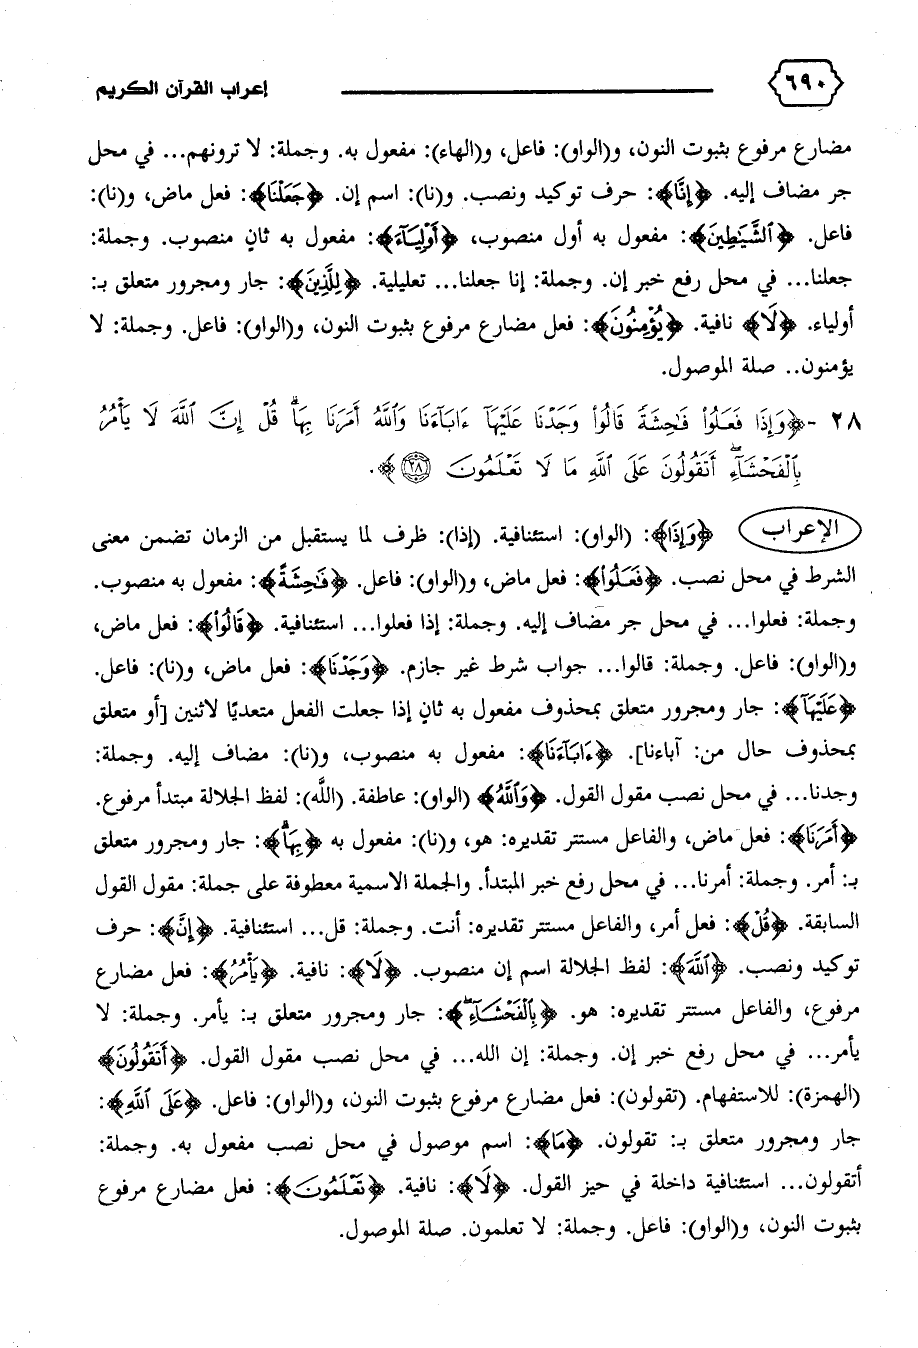 ٦٩٠ إعراب القرآن الكريم
مضارع مرفوع بثبوت النون، و(الواو): فاعل، و(الهاء): مفعول به. وجملة: لا ترونهم... في محل
جر مضاف إليه. ﴿إِنَّا﴾: حرف توكيد ونصب. و(نا): اسم إن. ﴿جَعَلْنَا﴾: فعل ماض، و(نا):
فاعل. ﴿ٱلشَّيَـٰطِينَ﴾: مفعول به أول منصوب، ﴿أَوْلِيَآءَ﴾: مفعول به ثانٍ منصوب. وجملة:
جعلنا... في محل رفع خبر إن. وجملة: إنا جعلنا... تعليلية. ﴿لِلَّذِينَ﴾: جار ومجرور متعلق بـ:
أولياء. ﴿لَا﴾ نافية. ﴿يُؤْمِنُونَ﴾: فعل مضارع مرفوع بثبوت النون، و(الواو): فاعل. وجملة: لا
يؤمنون.. صلة الموصول.
٢٨ - ﴿وَإِذَا فَعَلُوا۟ فَـٰحِشَةً قَالُوا۟ وَجَدْنَا عَلَيْهَآ ءَابَآءَنَا وَٱللَّهُ أَمَرَنَا بِهَا ۗ قُلْ إِنَّ ٱللَّهَ لَا يَأْمُرُ
بِٱلْفَحْشَآءِ ۖ أَتَقُولُونَ عَلَى ٱللَّهِ مَا لَا تَعْلَمُونَ ﴿٢٨﴾﴾.
الإعراب ﴿وَإِذَا﴾: (الواو): استئنافية. (إذا): ظرف لما يستقبل من الزمان تضمن معنى
الشرط في محل نصب. ﴿فَعَلُوا۟﴾: فعل ماض، و(الواو): فاعل. ﴿فَـٰحِشَةً﴾: مفعول به منصوب.
وجملة: فعلوا... في محل جر مضاف إليه. وجملة: إذا فعلوا... استئنافية. ﴿قَالُوا۟﴾: فعل ماض،
و(الواو): فاعل. وجملة: قالوا... جواب شرط غير جازم. ﴿وَجَدْنَا﴾: فعل ماض، و(نا): فاعل.
﴿عَلَيْهَآ﴾: جار ومجرور متعلق بمحذوف مفعول به ثانٍ إذا جعلت الفعل متعديًا لاثنين [أو متعلق
بمحذوف حال من: آباءنا]. ﴿ءَابَآءَنَا﴾: مفعول به منصوب، و(نا): مضاف إليه. وجملة:
وجدنا... في محل نصب مقول القول. ﴿وَٱللَّهُ﴾ (الواو): عاطفة. (الله): لفظ الجلالة مبتدأ مرفوع.
﴿أَمَرَنَا﴾: فعل ماض، والفاعل مستتر تقديره: هو، و(نا): مفعول به ﴿بِهَا ۗ﴾: جار ومجرور متعلق
بـ: أمر. وجملة: أمرنا... في محل رفع خبر المبتدأ. والجملة الاسمية معطوفة على جملة: مقول القول
السابقة. ﴿قُلْ﴾: فعل أمر، والفاعل مستتر تقديره: أنت. وجملة: قل... استئنافية. ﴿إِنَّ﴾: حرف
توكيد ونصب. ﴿ٱللَّهَ﴾: لفظ الجلالة اسم إن منصوب. ﴿لَا﴾: نافية. ﴿يَأْمُرُ﴾: فعل مضارع
مرفوع، والفاعل مستتر تقديره: هو. ﴿بِٱلْفَحْشَآءِ ۖ﴾: جار ومجرور متعلق بـ: يأمر. وجملة: لا
يأمر... في محل رفع خبر إن. وجملة: إن الله... في محل نصب مقول القول. ﴿أَتَقُولُونَ﴾
(الهمزة): للاستفهام. (تقولون): فعل مضارع مرفوع بثبوت النون، و(الواو): فاعل. ﴿عَلَى ٱللَّهِ﴾:
جار ومجرور متعلق بـ: تقولون. ﴿مَا﴾: اسم موصول في محل نصب مفعول به. وجملة:
أتقولون... استئنافية داخلة في حيز القول. ﴿لَا﴾: نافية. ﴿تَعْلَمُونَ﴾: فعل مضارع مرفوع
بثبوت النون، و(الواو): فاعل. وجملة: لا تعلمون. صلة الموصول.